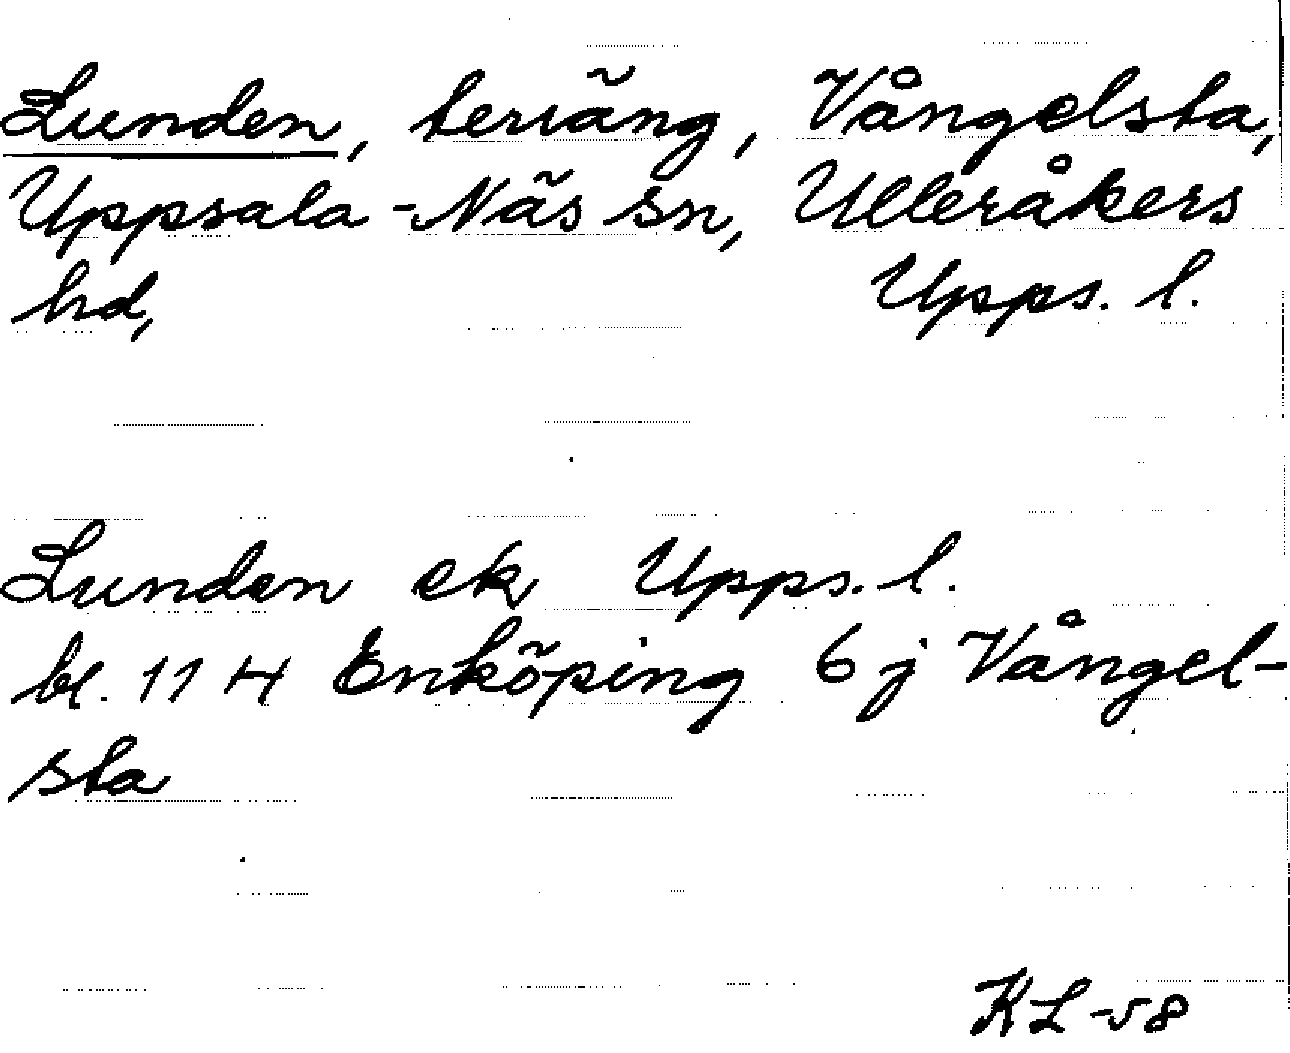 Lunden, terräng, Vångelsta,
Uppsala-Näs sn, Ulleråkers
hd, Upps. l.
Lunden ek Upps. l.
bl. 11 H Enköping 6 j Vångel-
sta
KL-58